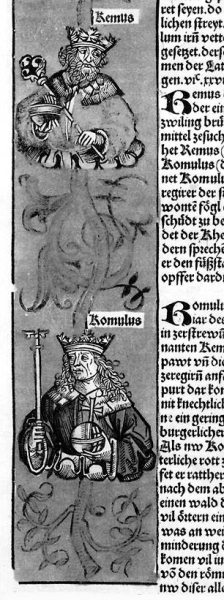 Remus
Romulus
et seyen.do
lichen streyt.
lum irñ vette
gesetzt.derse
men der Lat
gen.vi.xxvi
Remus
der er
zwiling brü
mittel zesich
het Remus
Romulus
net Romulu
regirer der
wonte
schüdt zu be
det der Rhe
dern spreche
er den füßsta
opffer dard
Romulu
iar des
in zerstrewu
nanten Rem
pawt vñ die
zeregirñ anf
purt dar kom
mit knechtlich
n: ein gering
burgerlicher
Als nw Ro
terliche rott z
set er ratther
nach dem ab
einen wald d
vil ötern ein
was an wei
minderung d
komen vil vn
vō den röm
nw diser alle